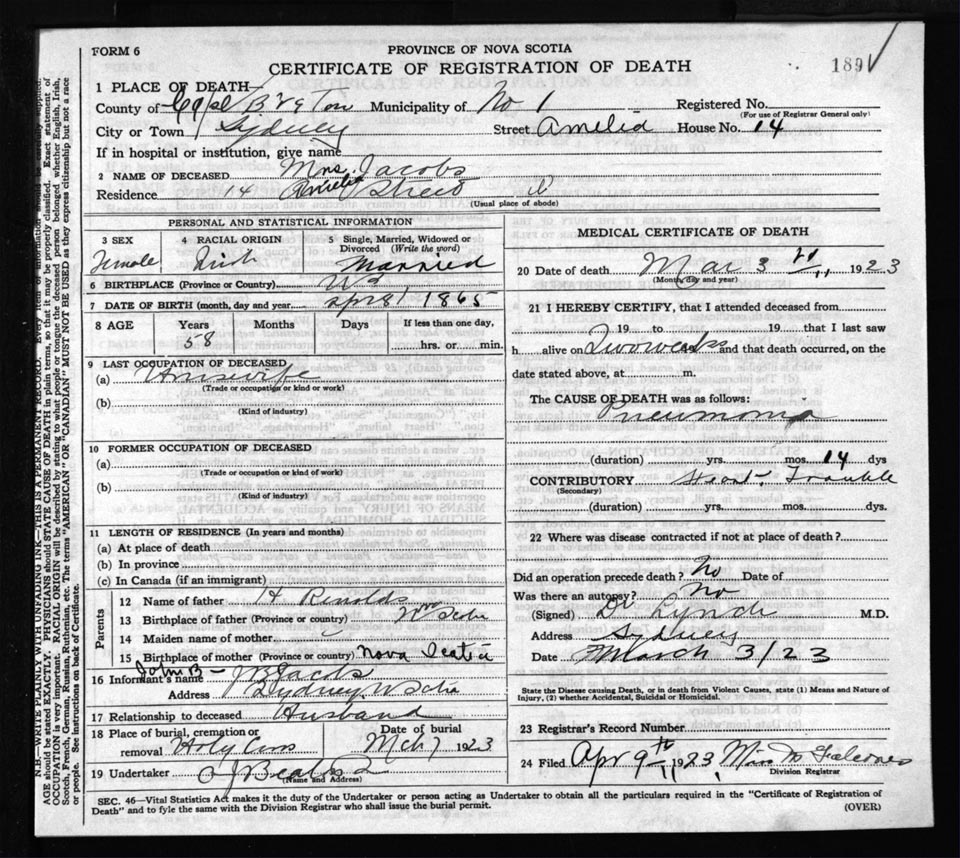 FORM 6
PROVINCE OF NOVA SCOTIA
CERTIFICATE OF REGISTRATION OF DEATH
189
1 PLACE OF DEATH
County of Cape Breton Municipality of No 1 Registered No.
(For use of Registrar General only)
City or Town Sydney Street Amelia House No. 14
If in hospital or institution, give name
2 NAME OF DECEASED Mrs Jacobs
Residence 14 Amelia Street
(Usual place of abode)
PERSONAL AND STATISTICAL INFORMATION
3 SEX 4 RACIAL ORIGIN 5 Single, Married, Widowed or Divorced (Write the word)
Female Irish Married
6 BIRTHPLACE (Province or Country)
7 DATE OF BIRTH (month, day and year) 1865
8 AGE Years Months Days If less than one day,
58 hrs. or min.
9 LAST OCCUPATION OF DECEASED
(a) Housewife
(Trade or occupation or kind or work)
(b)
(Kind of industry)
10 FORMER OCCUPATION OF DECEASED
(a)
(Trade or occupation or kind of work)
(b)
(Kind of industry)
11 LENGTH OF RESIDENCE (In years and months)
(a) At place of death
(b) In province
(c) In Canada (if an immigrant)
Parents
12 Name of father H Renolds
13 Birthplace of father (Province or country)
14 Maiden name of mother
15 Birthplace of mother (Province or country) Nova Scotia
John B
16 Informant's name Jacobs
Address Sydney
17 Relationship to deceased Husband
18 Place of burial, cremation or removal Holy Cross Date of burial Mch 7 1923
19 Undertaker
(Name and Address)
MEDICAL CERTIFICATE OF DEATH
20 Date of death Mar 3 1923
(Month, day and year)
21 I HEREBY CERTIFY, that I attended deceased from
19 to 19 that I last saw
h alive on Two weeks and that death occurred, on the
date stated above, at m.
The CAUSE OF DEATH was as follows:
Pneumonia
(duration) yrs. mos. 14 dys
CONTRIBUTORY Heart Trouble
(Secondary)
(duration) yrs. mos. dys.
22 Where was disease contracted if not at place of death?
Did an operation precede death? No Date of
Was there an autopsy? No
(Signed) Dr Lynch M.D.
Address Sydney
Date March 3/23
State the Disease causing Death, or in death from Violent Causes, state (1) Means and Nature of
Injury, (2) whether Accidental, Suicidal or Homicidal.
23 Registrar's Record Number
24 Filed Apr 9th 1923
Division Registrar
SEC. 46—Vital Statistics Act makes it the duty of the Undertaker or person acting as Undertaker to obtain all the particulars required in the "Certificate of Registration of
Death" and to fyle the same with the Division Registrar who shall issue the burial permit. (OVER)
N.B.—WRITE PLAINLY WITH UNFADING INK—THIS IS A PERMANENT RECORD. Every item of information should be carefully supplied.
AGE should be stated EXACTLY. PHYSICIANS should STATE CAUSE OF DEATH in plain terms, so that it may be properly classified. Exact statement of
OCCUPATION is very important. RACIAL ORIGIN will be described by stating to what people or tongue the deceased person belonged whether English, Irish,
Scotch, French, German, Russian, Ruthenian, etc. The terms "AMERICAN" OR "CANADIAN" MUST NOT BE USED as they express citizenship but not a race
or people. See instructions on back of Certificate.